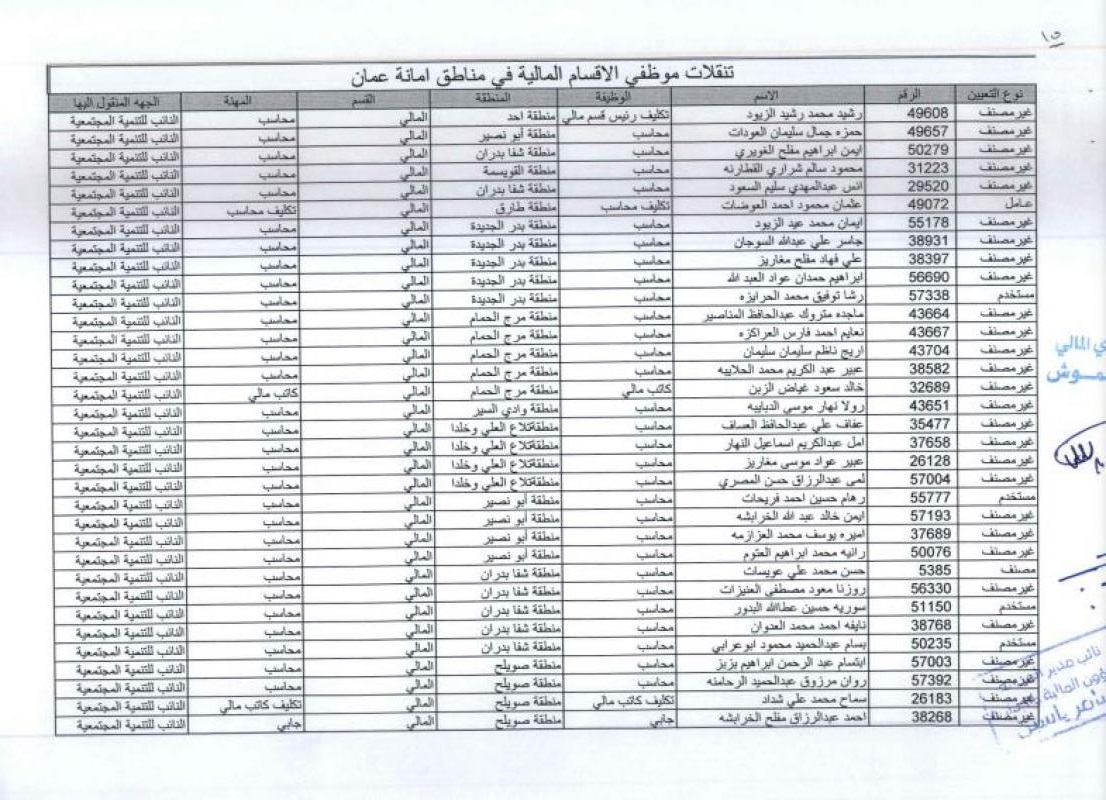 ١٥
تنقلات موظفي الاقسام المالية في مناطق امانة عمان
نوع التعيين الرقم الاسم الوظيفة المنطقة القسم المهنة الجهه المنقول اليها
غير مصنف 49608 رشيد محمد رشيد الزيود تكليف رئيس قسم مالي منطقة احد المالي محاسب النائب للتنمية المجتمعية
غير مصنف 49657 حمزه جمال سليمان العودات محاسب منطقة أبو نصير المالي محاسب النائب للتنمية المجتمعية
غير مصنف 50279 ايمن ابراهيم مفلح الغويري محاسب منطقة شفا بدران المالي محاسب النائب للتنمية المجتمعية
غير مصنف 31223 محمود سالم شراري القطارنه محاسب منطقة القويسمة المالي محاسب النائب للتنمية المجتمعية
غير مصنف 29520 انس عبدالمهدي سليم السعود محاسب منطقة شفا بدران المالي محاسب النائب للتنمية المجتمعية
عامل 49072 عثمان محمود احمد العوضات تكليف محاسب منطقة طارق المالي تكليف محاسب النائب للتنمية المجتمعية
غير مصنف 55178 ايمان محمد عيد الزيود محاسب منطقة بدر الجديدة المالي محاسب النائب للتنمية المجتمعية
غير مصنف 38931 جاسر علي عبدالله السوجان محاسب منطقة بدر الجديدة المالي محاسب النائب للتنمية المجتمعية
غير مصنف 38397 علي فهاد مفلح مغاريز محاسب منطقة بدر الجديدة المالي محاسب النائب للتنمية المجتمعية
غير مصنف 56690 ابراهيم حمدان عواد العبد الله محاسب منطقة بدر الجديدة المالي محاسب النائب للتنمية المجتمعية
مستخدم 57338 رشا توفيق محمد الحرايزه محاسب منطقة بدر الجديدة المالي محاسب النائب للتنمية المجتمعية
غير مصنف 43664 ماجده متروك عبدالحافظ المناصير محاسب منطقة مرج الحمام المالي محاسب النائب للتنمية المجتمعية
غير مصنف 43667 نعايم احمد فارس العراكزه محاسب منطقة مرج الحمام المالي محاسب النائب للتنمية المجتمعية
غير مصنف 43704 اريج ناظم سليمان سليمان محاسب منطقة مرج الحمام المالي محاسب النائب للتنمية المجتمعية
غير مصنف 38582 عبير عبد الكريم محمد الحلاييه محاسب منطقة مرج الحمام المالي محاسب النائب للتنمية المجتمعية
غير مصنف 32689 خالد سعود غياض الزبن كاتب مالي منطقة مرج الحمام المالي كاتب مالي النائب للتنمية المجتمعية
غير مصنف 43651 رولا نهار موسى الدبايبه محاسب منطقة وادي السير المالي محاسب النائب للتنمية المجتمعية
غير مصنف 35477 عفاف علي عبدالحافظ العساف محاسب منطقةتلاع العلي وخلدا المالي محاسب النائب للتنمية المجتمعية
غير مصنف 37658 امل عبدالكريم اسماعيل النهار محاسب منطقةتلاع العلي وخلدا المالي محاسب النائب للتنمية المجتمعية
غير مصنف 26128 عبير عواد موسى مغاريز محاسب منطقةتلاع العلي وخلدا المالي محاسب النائب للتنمية المجتمعية
غير مصنف 57004 لمى عبدالرزاق حسن المصري محاسب منطقةتلاع العلي وخلدا المالي محاسب النائب للتنمية المجتمعية
مستخدم 55777 رهام حسين احمد فريحات محاسب منطقة أبو نصير المالي محاسب النائب للتنمية المجتمعية
غير مصنف 57193 ايمن خالد عبد الله الخرابشه محاسب منطقة أبو نصير المالي محاسب النائب للتنمية المجتمعية
غير مصنف 37689 اميره يوسف محمد العزازمه محاسب منطقة أبو نصير المالي محاسب النائب للتنمية المجتمعية
غير مصنف 50076 رانيه محمد ابراهيم العتوم محاسب منطقة أبو نصير المالي محاسب النائب للتنمية المجتمعية
مصنف 5385 حسن محمد علي عويسات محاسب منطقة شفا بدران المالي محاسب النائب للتنمية المجتمعية
غير مصنف 56330 روزنا معود مصطفى العنيزات محاسب منطقة شفا بدران المالي محاسب النائب للتنمية المجتمعية
مستخدم 51150 سوريه حسين عطاالله البدور محاسب منطقة شفا بدران المالي محاسب النائب للتنمية المجتمعية
غير مصنف 38768 نايفه احمد محمد العدوان محاسب منطقة شفا بدران المالي محاسب النائب للتنمية المجتمعية
مستخدم 50235 بسام عبدالحميد محمود ابوعرابي محاسب منطقة شفا بدران المالي محاسب النائب للتنمية المجتمعية
غير مصنف 57003 ابتسام عبد الرحمن ابراهيم يزيز محاسب منطقة صويلح المالي محاسب النائب للتنمية المجتمعية
غير مصنف 57392 روان مرزوق عبدالحميد الرحامنه محاسب منطقة صويلح المالي محاسب النائب للتنمية المجتمعية
غير مصنف 26183 سماح محمد علي شداد تكليف كاتب مالي منطقة صويلح المالي تكليف كاتب مالي النائب للتنمية المجتمعية
غير مصنف 38268 احمد عبدالرزاق مفلح الخرابشه جابي منطقة صويلح المالي جابي النائب للتنمية المجتمعية
ي المالي
نائب مدير
المالية